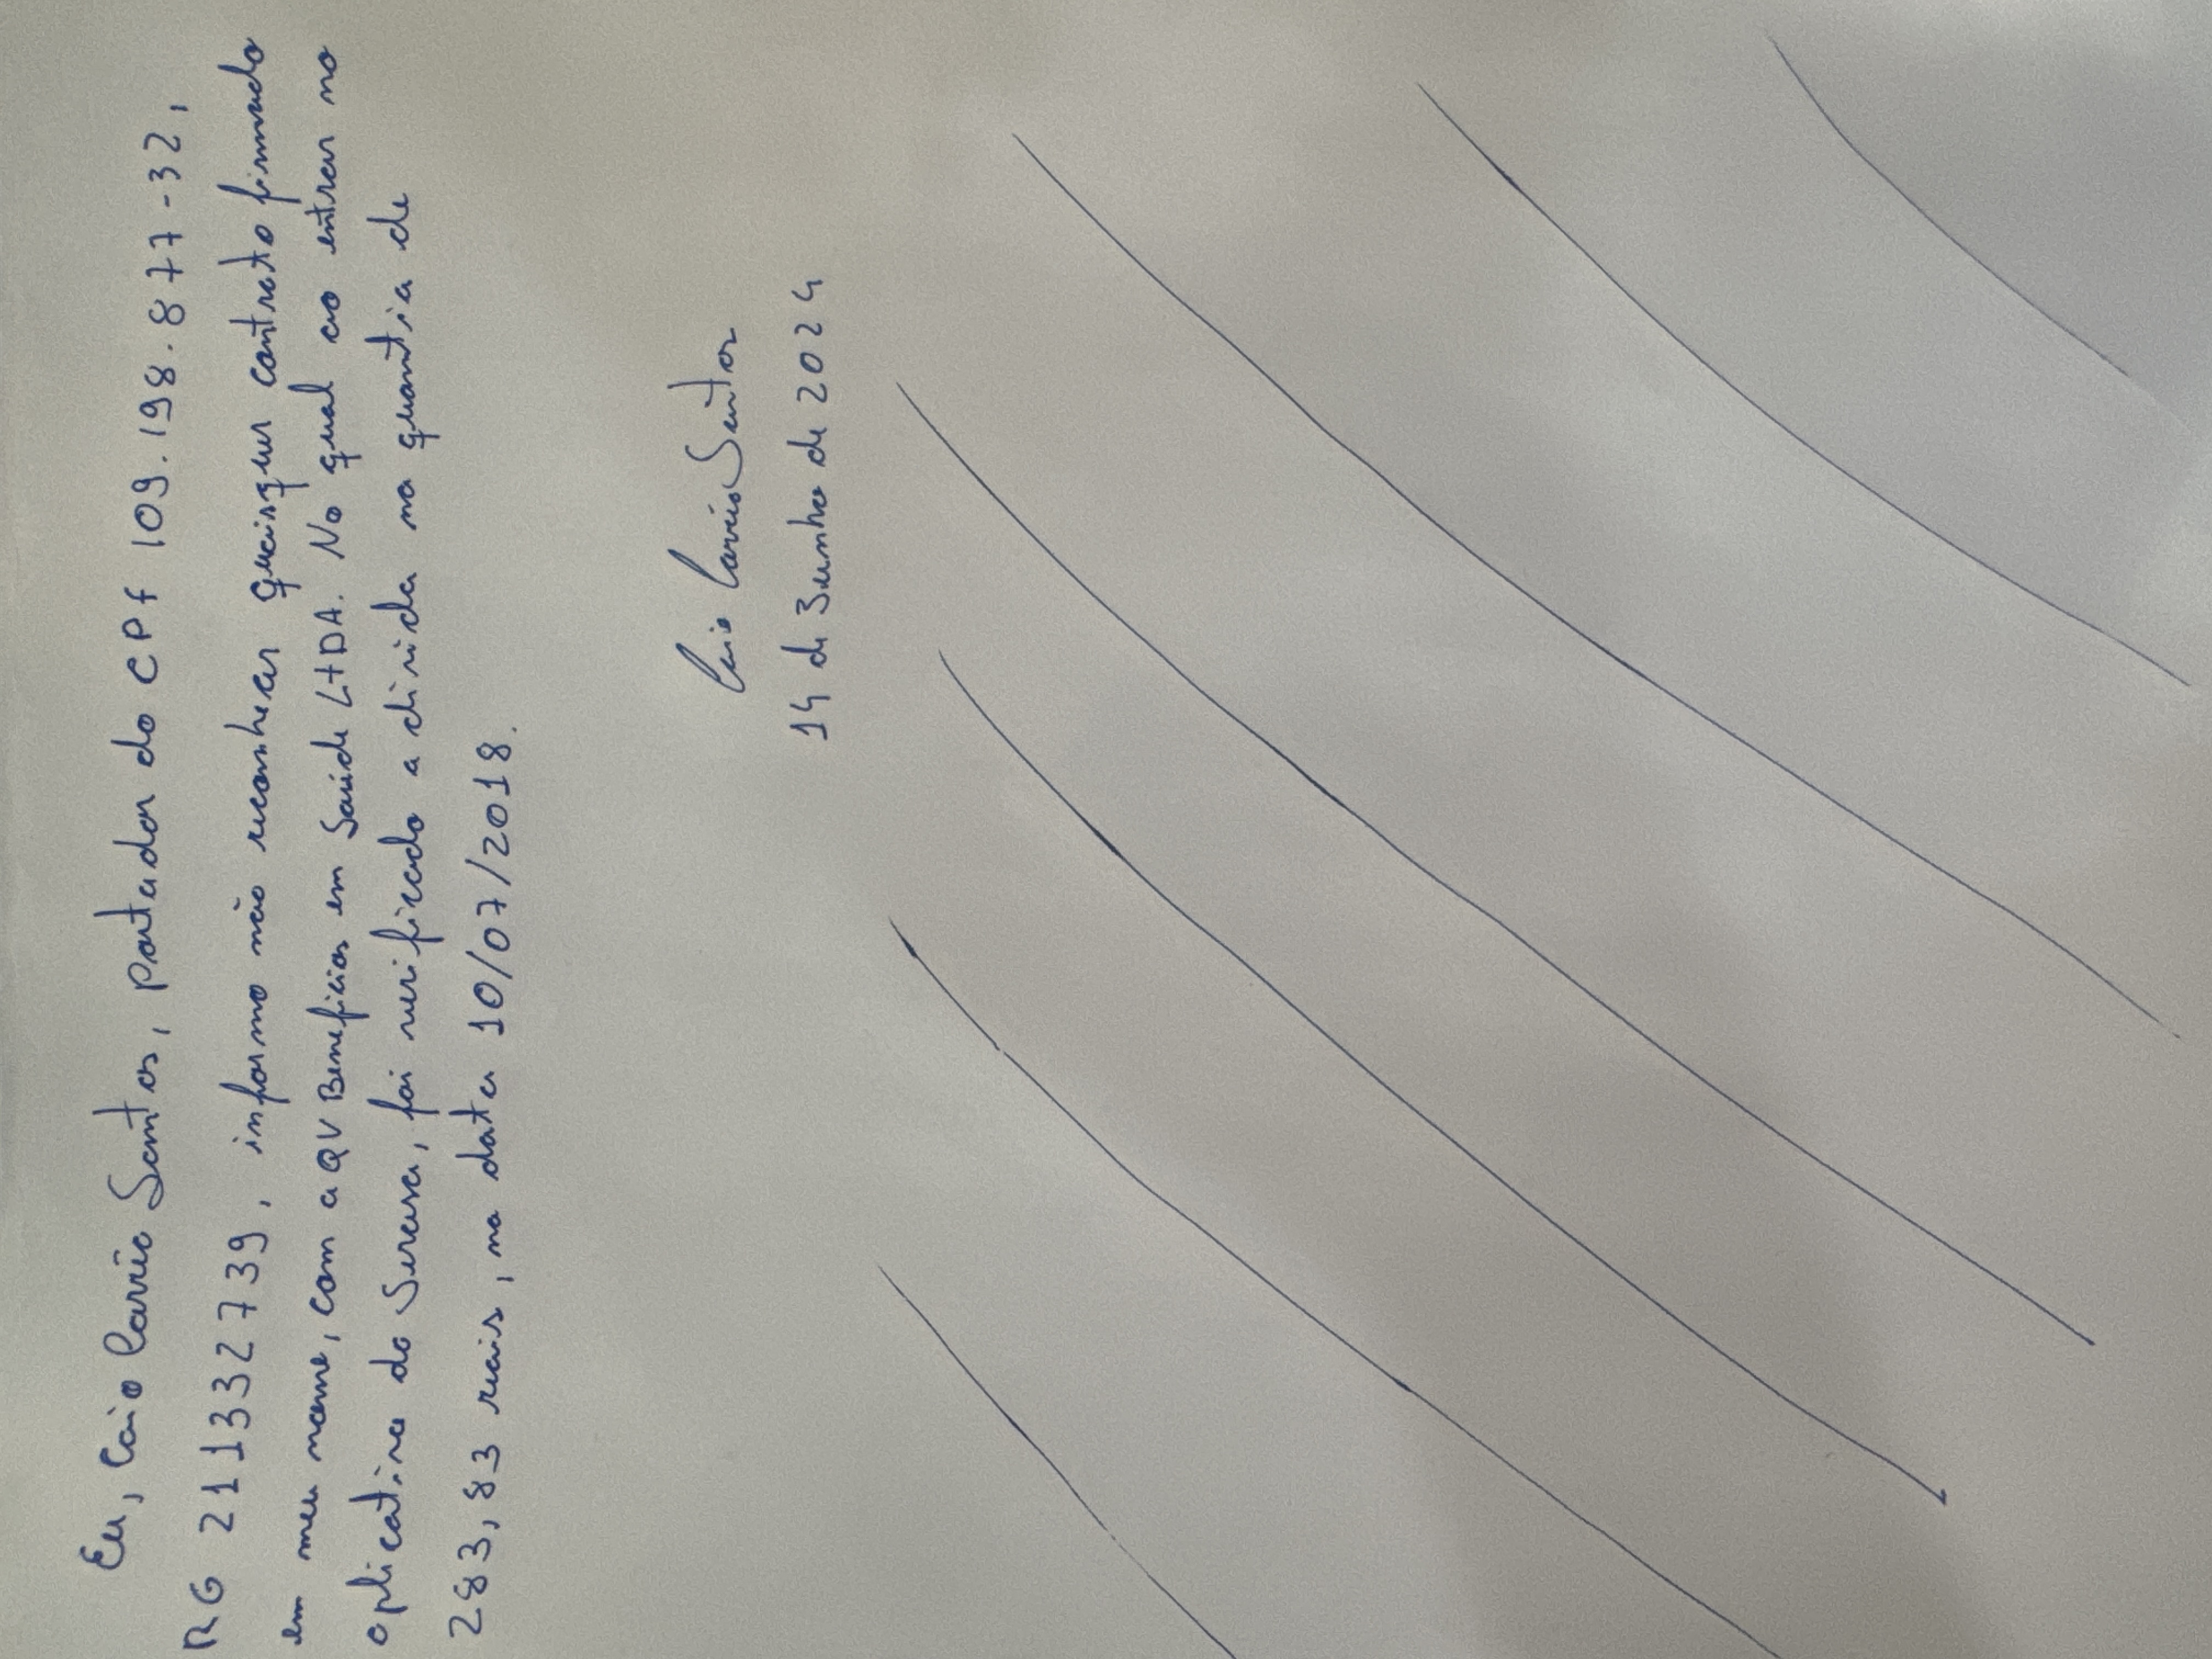 Eu, Caio Carrão Santos, portador do CPf 109.198.877-32,
RG 211332739, informo não reconhecer quaisquer contrato firmado
em meu nome, com a QV Beneficios em Saúde LTDA. No qual ao entrar no
aplicativo do Serasa, foi verificado a divida na quantia de
283,83 reais, na data 10/07/2018.
Caio Santos
14 de Junho de 2024